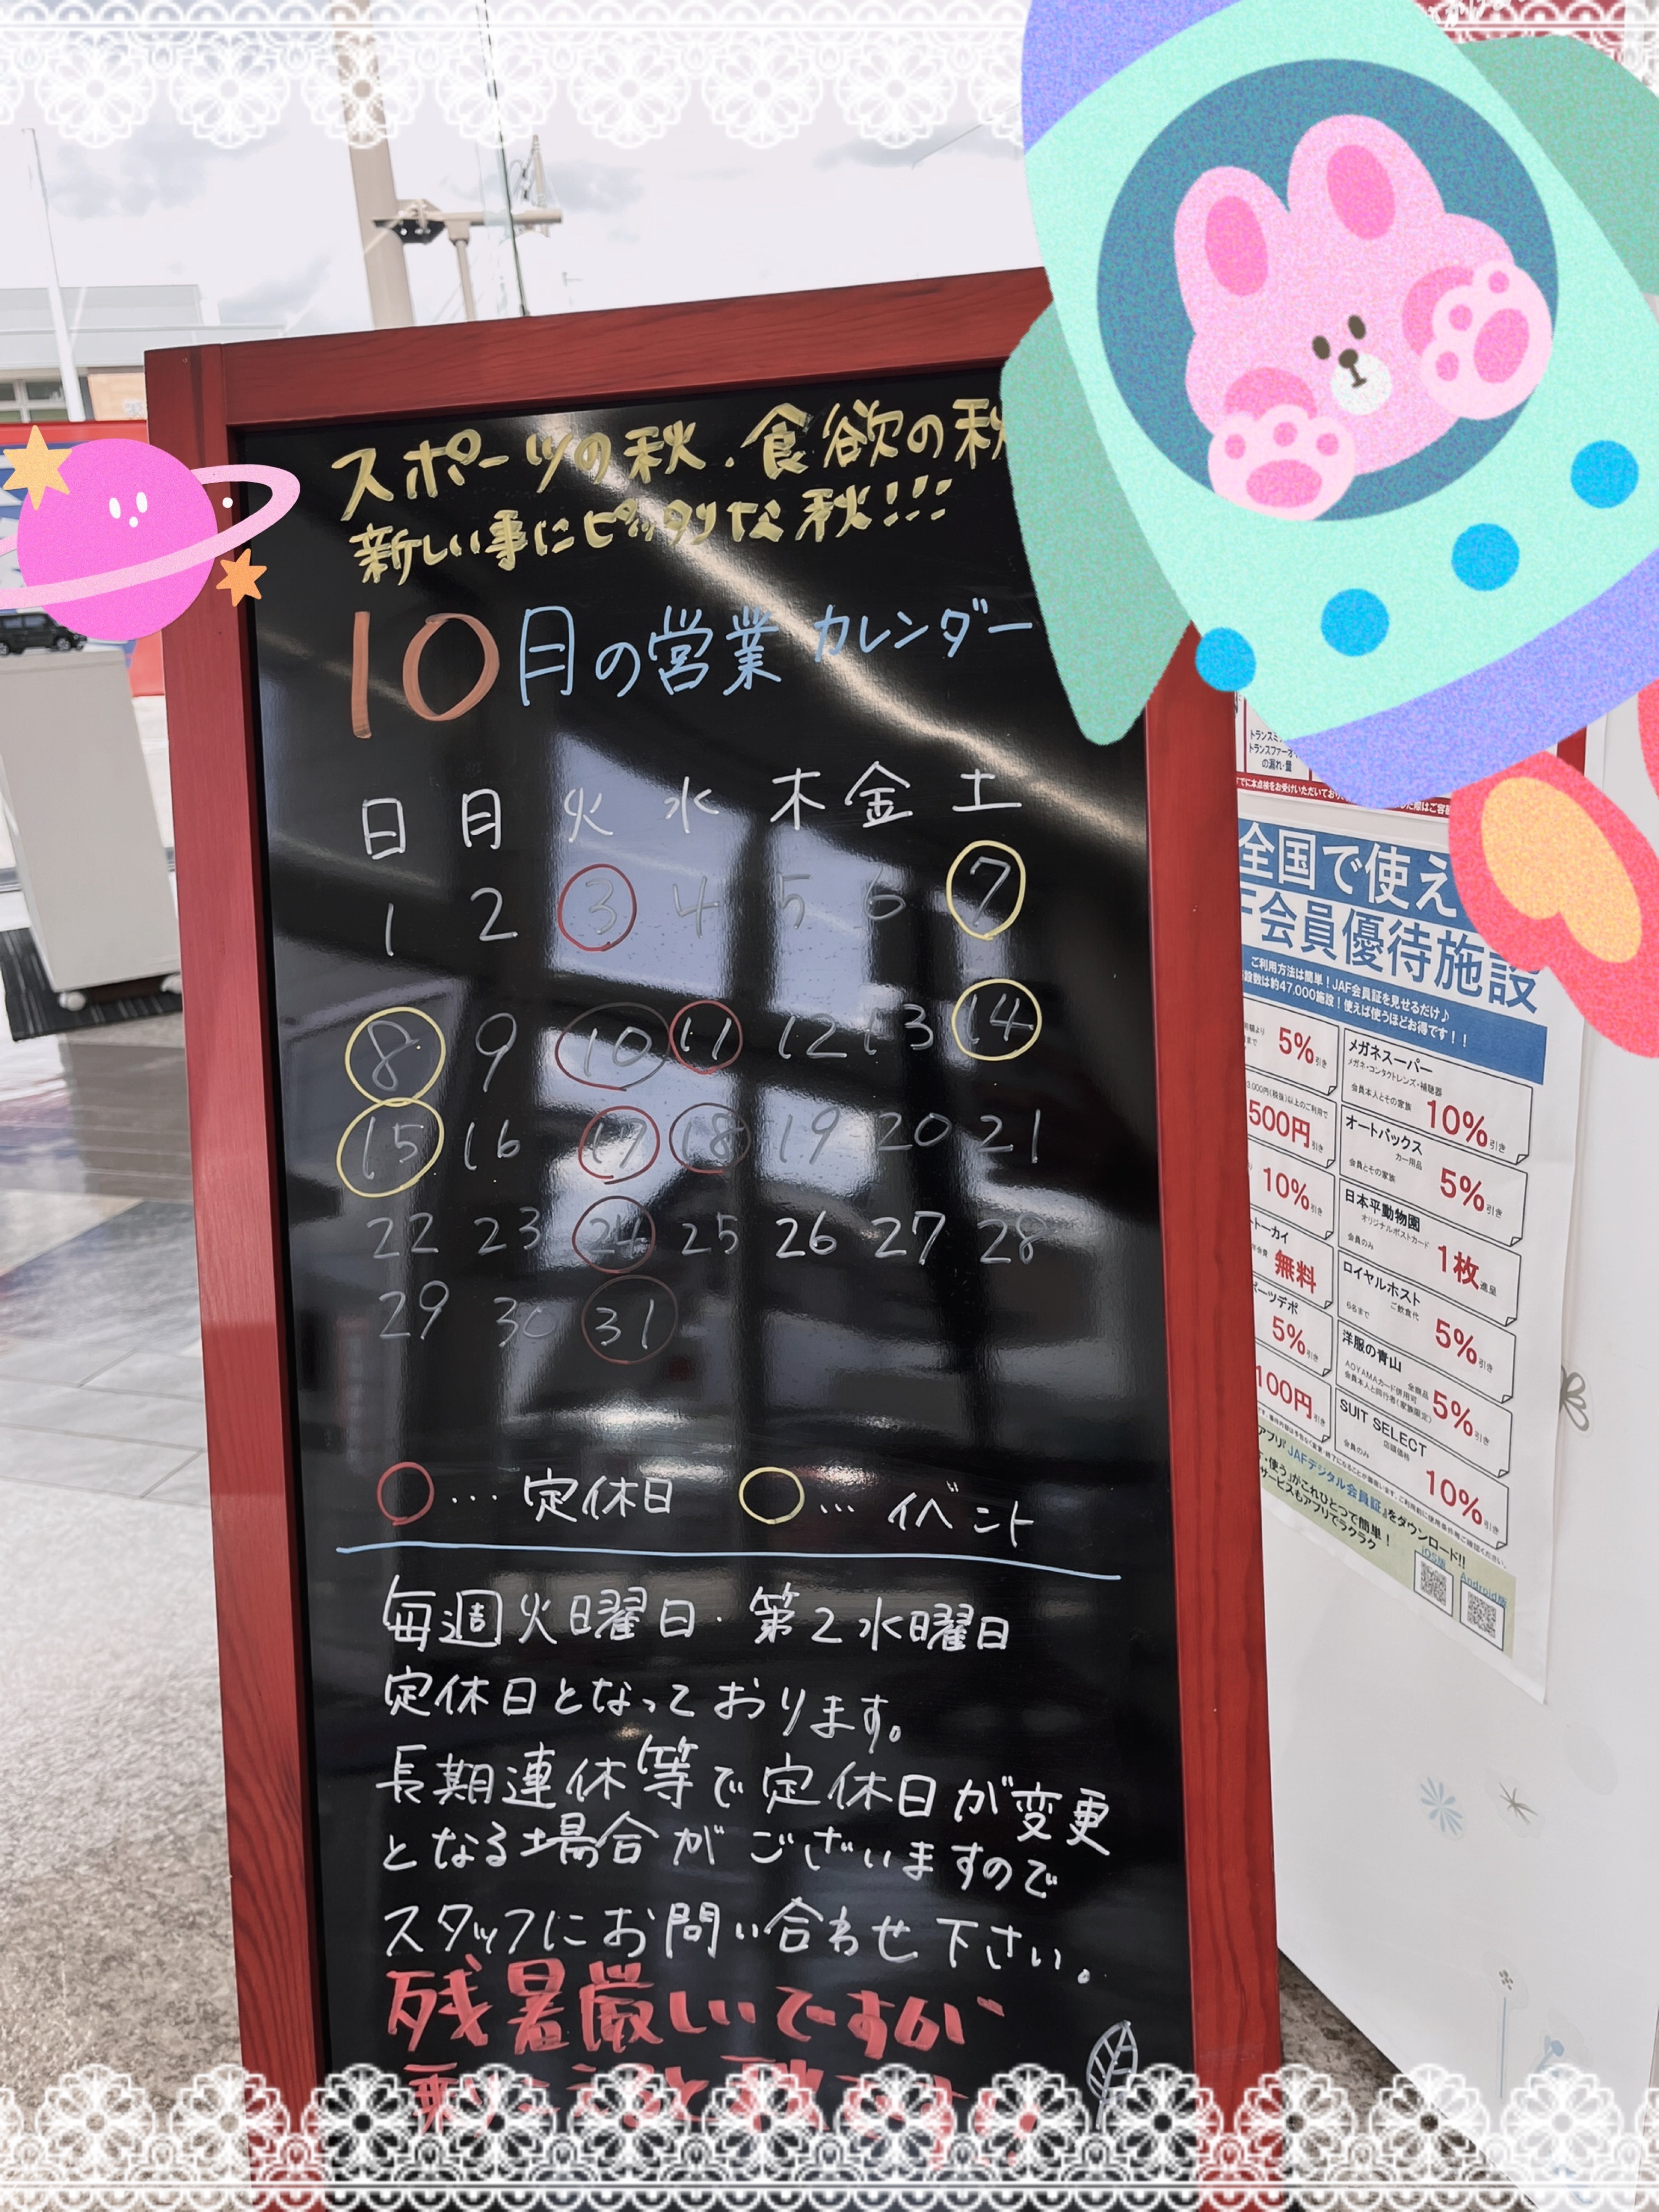 スポーツの秋・食欲の秋
新しい事にピッタリな秋!!!
10月の営業カレンダー
日 月 火 水 木 金 土
1 2 3 4 5 6 7
8 9 10 11 12 13 14
15 16 17 18 19 20 21
22 23 24 25 26 27 28
29 30 31
…定休日 …イベント
毎週火曜日・第2水曜日
定休日となっております。
長期連休等で定休日が変更
となる場合がございますので
スタッフにお問い合わせ下さい。
残暑厳しいですが
の漏れ・量
全国で使え
会員優待施設
ご利用方法は簡単!JAF会員証を見せるだけ♪
設数は約47,000施設!使えば使うほどお得です!!
5%引き
500円引き
10%引き
トーカイ
無料
ーツデポ
5%引き
100円引き
メガネスーパー
メガネ・コンタクトレンズ・補聴器
会員本人とその家族
10%引き
オートバックス
カー用品
会員とその家族
5%引き
日本平動物園
オリジナルポストカード
会員のみ
1枚進呈
ロイヤルホスト
ご飲食代
6名まで
5%引き
洋服の青山
全商品
AOYAMAカード併用可
会員本人と同行者(家族限定)
5%引き
SUIT SELECT
店頭価格
会員のみ
10%引き
アプリ『JAFデジタル会員証』をダウンロード!!
・使う』がこれひとつで簡単!
サービスもアプリでラクラク
iOS版
Android版